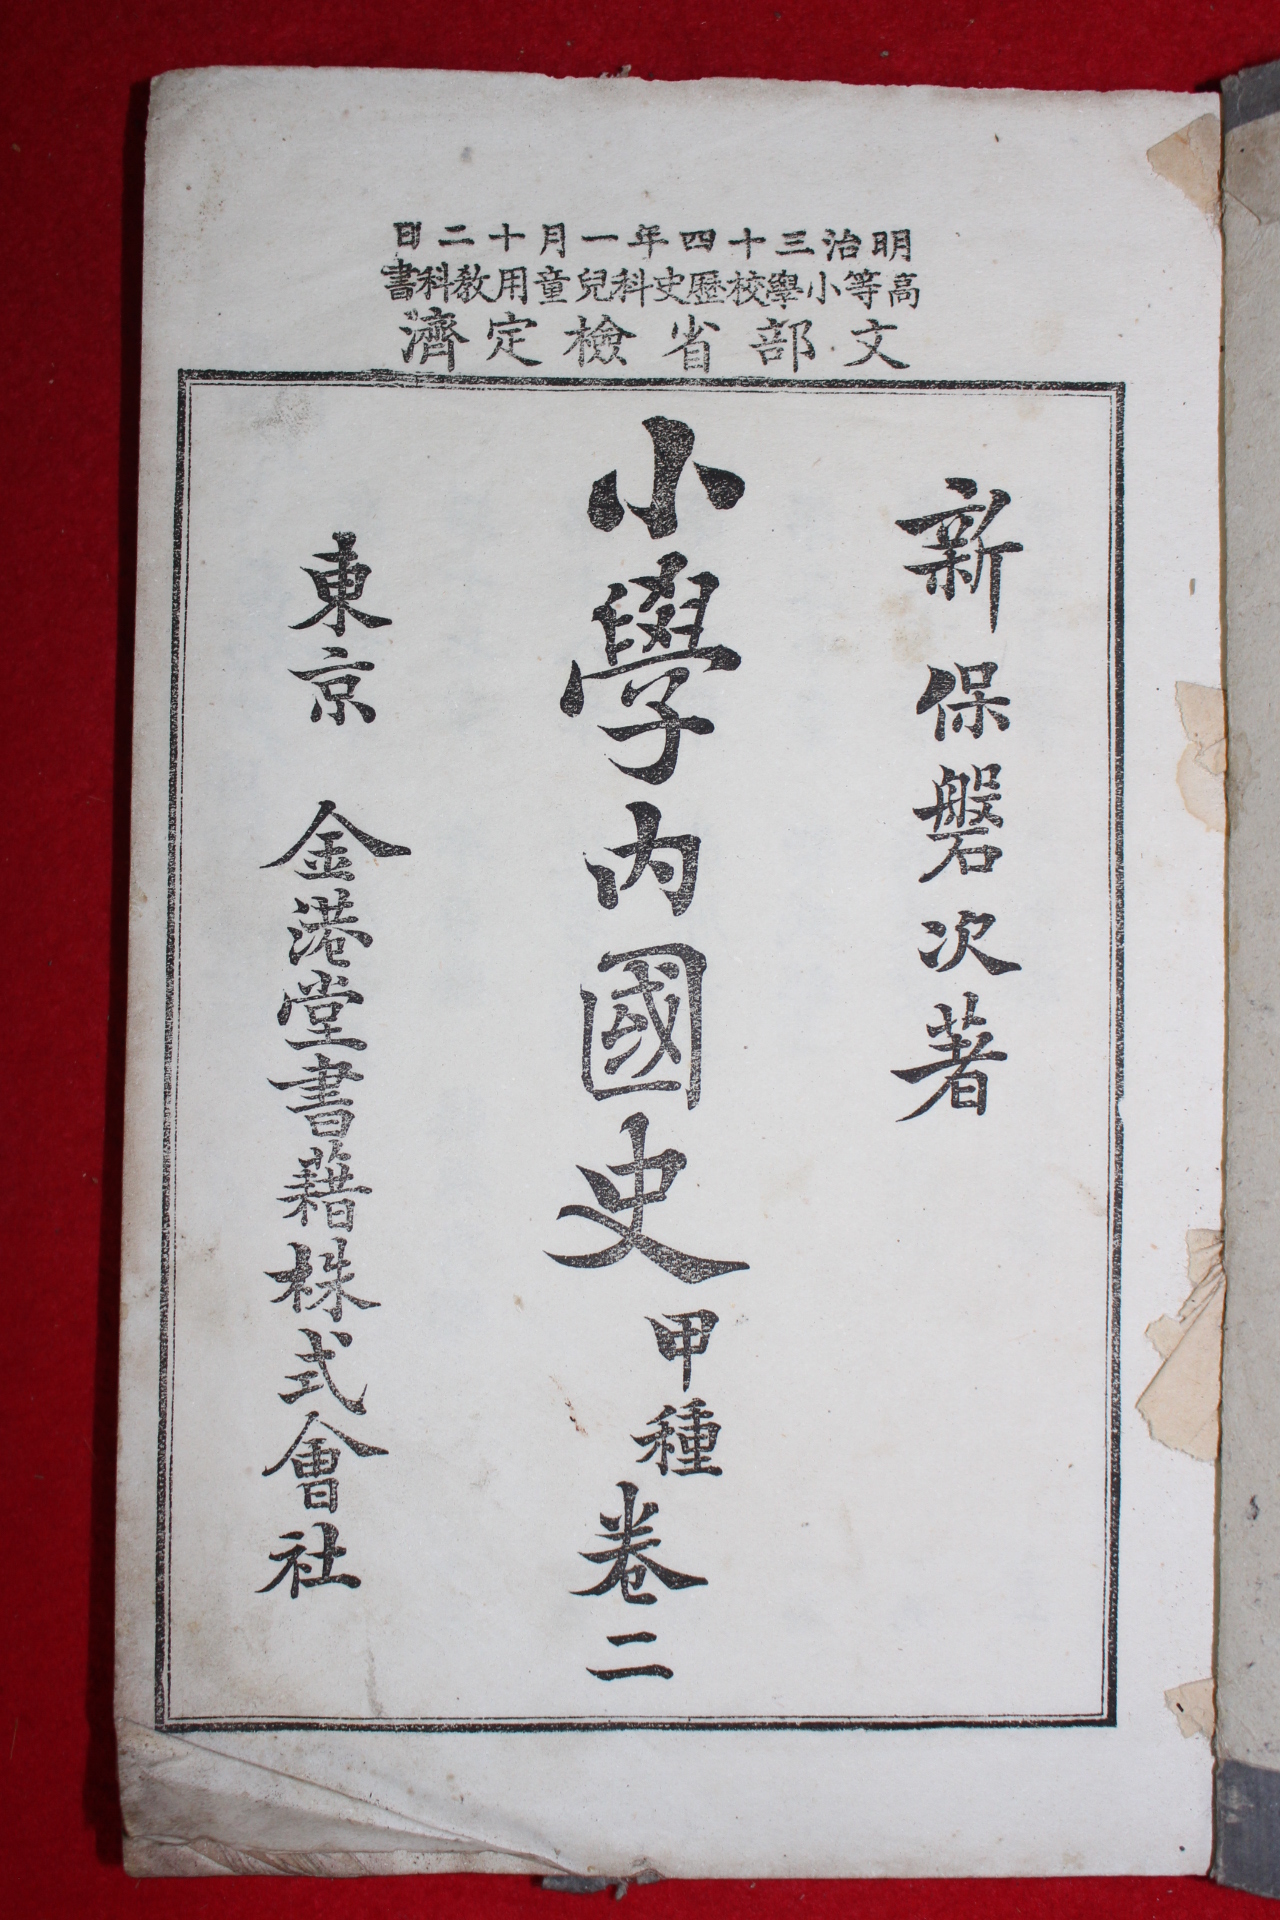 明治三十四年一月十二日
高等小學校歷史科兒童用敎科書
文部省檢定濟
新保磐次著
小學內國史甲種卷二
東京　金港堂書籍株式會社